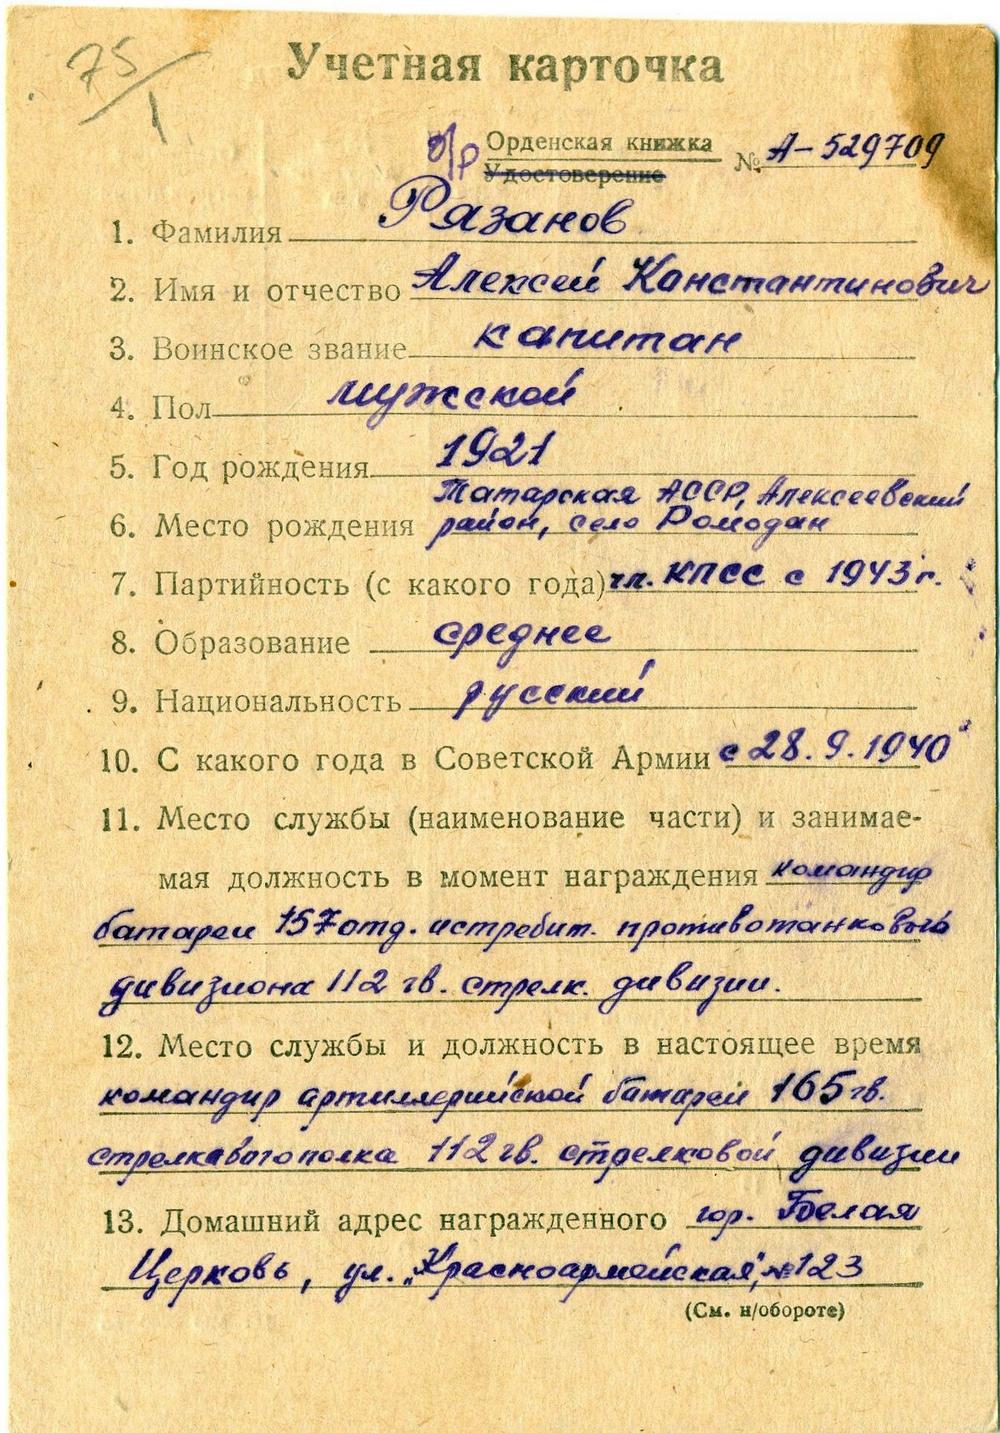 75/1
Учетная карточка
б/р Орденская книжка № А-529709
Удостоверение
1. Фамилия Рязанов
2. Имя и отчество Алексей Константинович
3. Воинское звание капитан
4. Пол мужской
5. Год рождения 1921
Татарская АССР, Алексеевский
6. Место рождения район, село Ромодан
7. Партийность (с какого года) чл. КПСС с 1943 г.
8. Образование среднее
9. Национальность русский
10. С какого года в Советской Армии с 28.9.1940
11. Место службы (наименование части) и занимае-
мая должность в момент награждения командир
батареи 157 отд. истребит. противотанкового
дивизиона 112 гв. стрелк. дивизии.
12. Место службы и должность в настоящее время
командир артиллерийской батареи 165 гв.
стрелкового полка 112 гв. стрелковой дивизии
13. Домашний адрес награжденного гор. Белая
Церковь, ул. „Красноармейская", №123
(См. н/обороте)